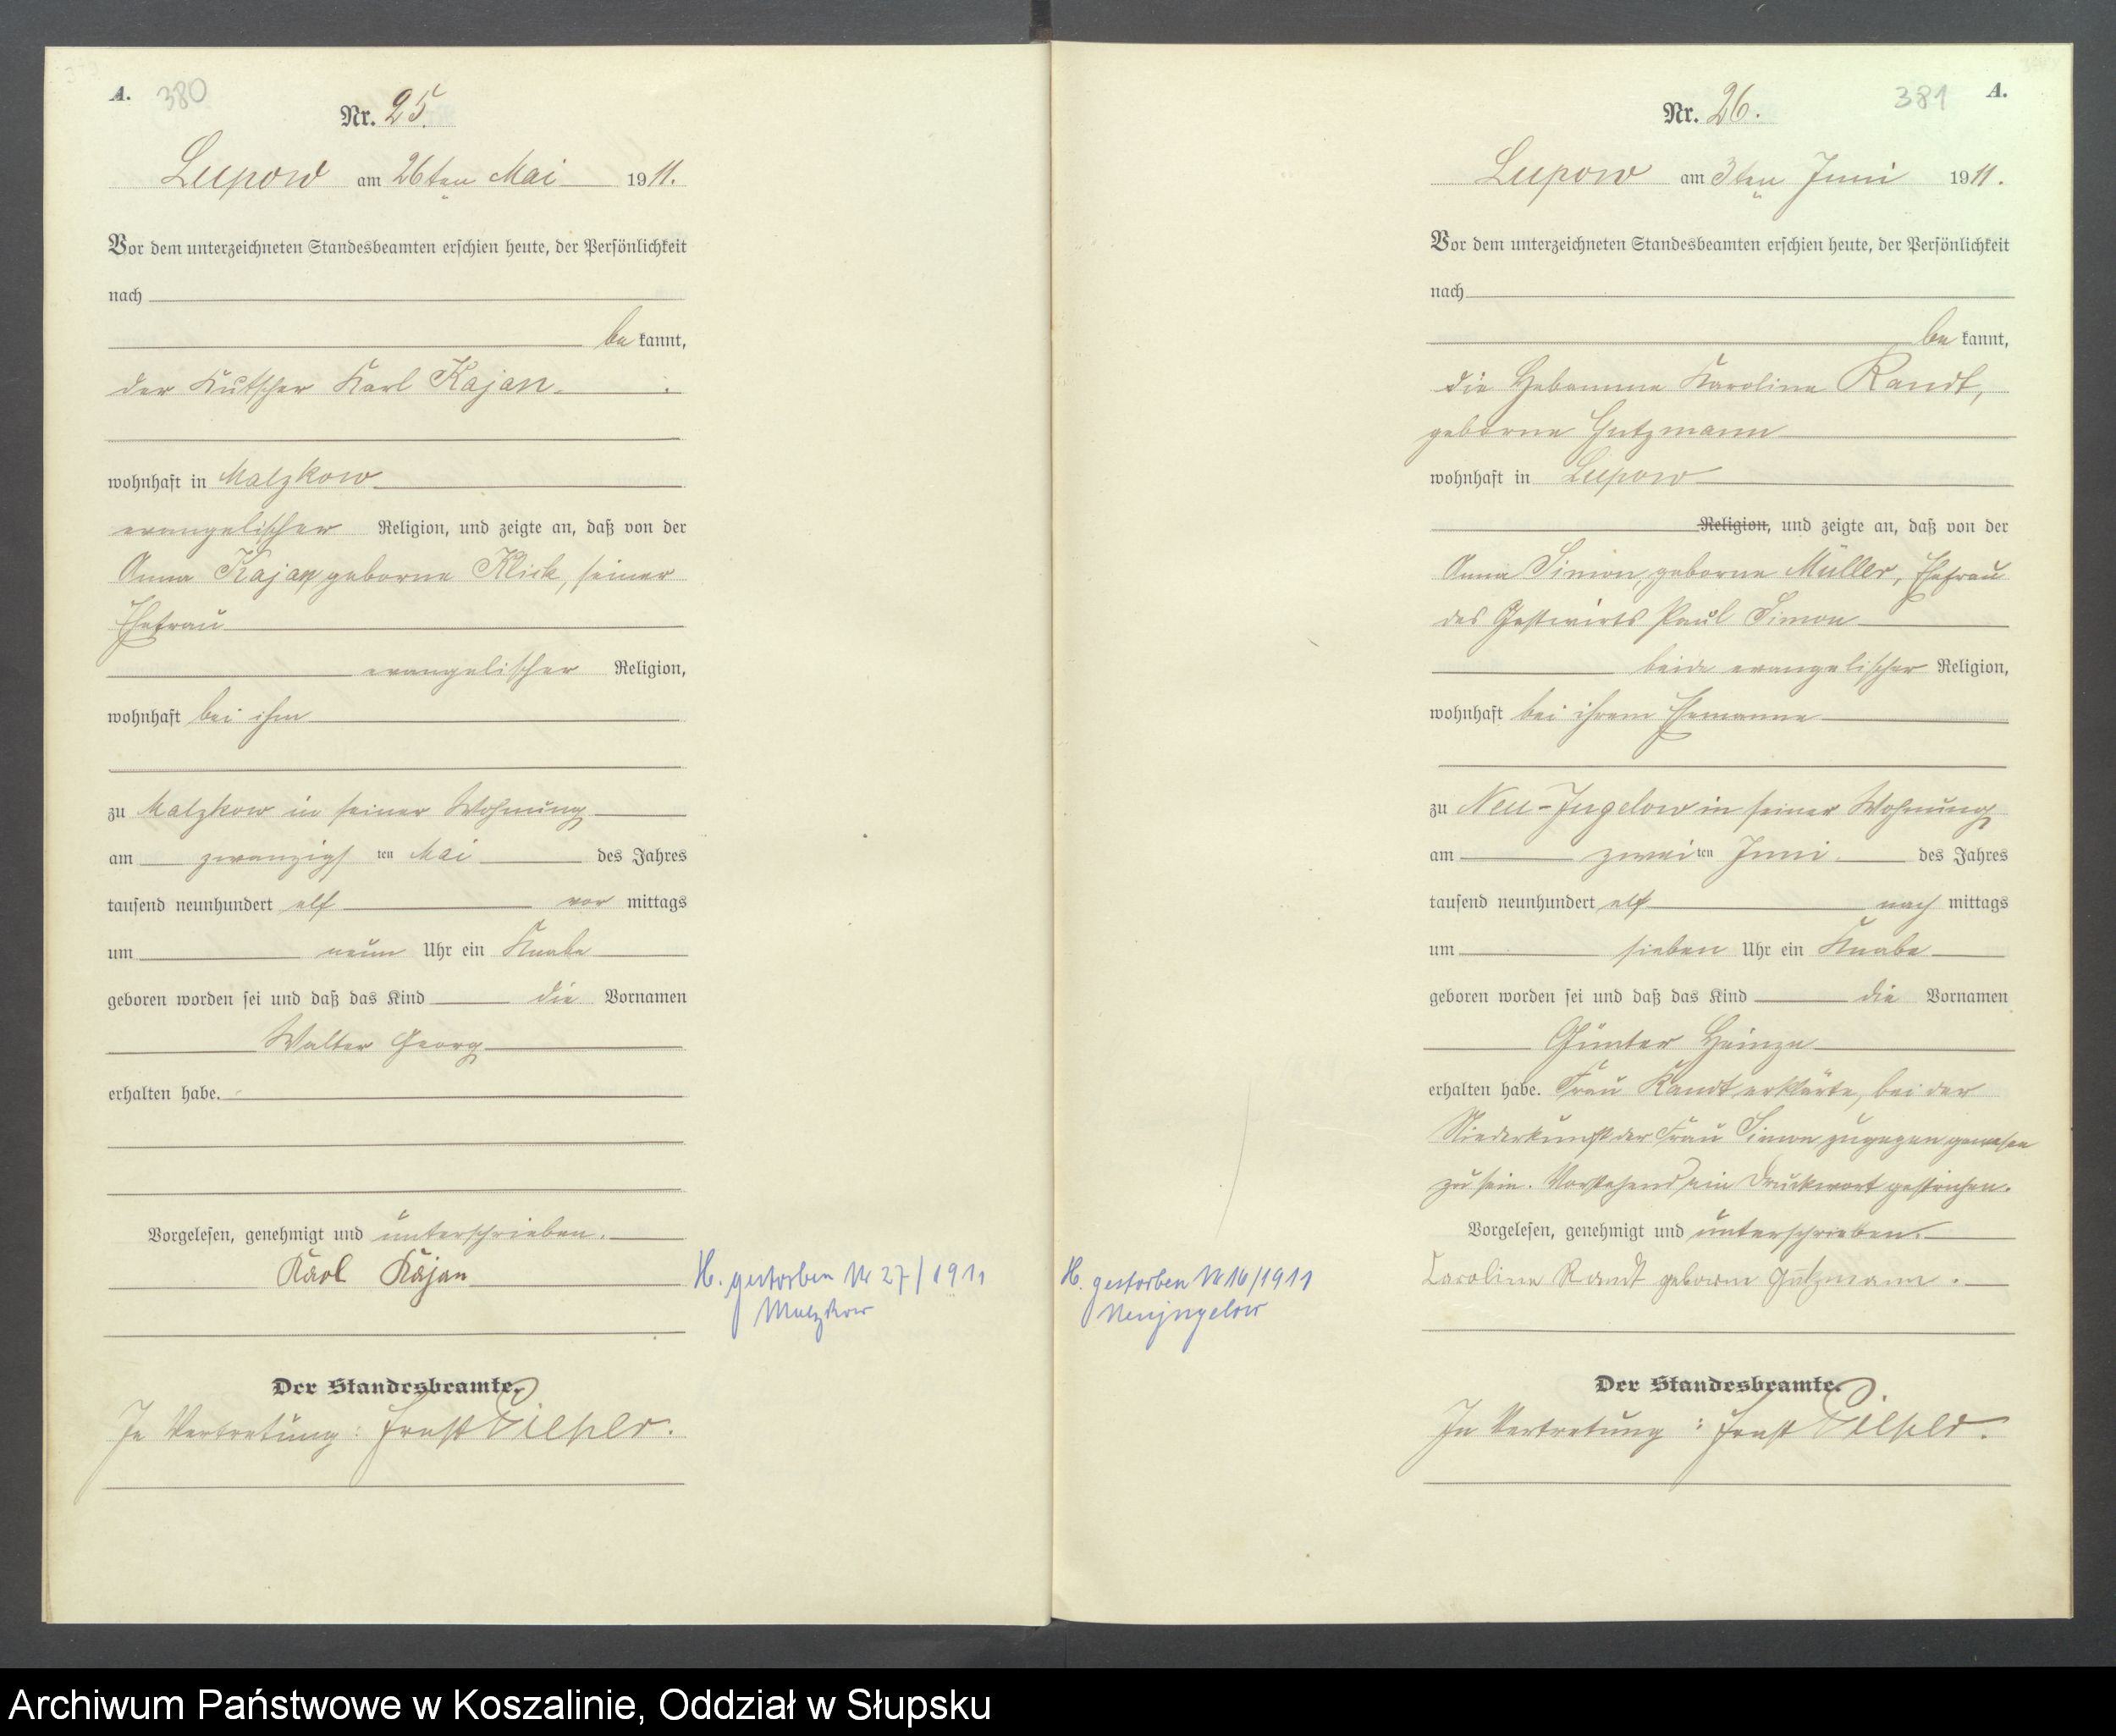 A. 380
Nr. 25.
Lupow am 26ten Mai 1911.
Vor dem unterzeichneten Standesbeamten erschien heute, der Persönlichkeit
nach
be kannt,
der Kutscher Karl Kajan.
wohnhaft in Malzkow
evangelischer Religion, und zeigte an, daß von der
Anna Kajan geborne Klick, seiner
Ehefrau
evangelischer Religion,
wohnhaft bei ihm
zu Malzkow in seiner Wohnung
am zwanzigsten Mai des Jahres
tausend neunhundert elf vor mittags
um neun Uhr ein Knabe
geboren worden sei und daß das Kind die Vornamen
Walter Georg
erhalten habe.
Vorgelesen, genehmigt und unterschrieben.
Karl Kajan
H. gestorben Nr 27/1911
Malzkow
Der Standesbeamte.
In Vertretung: Ernst
381 A.
Nr. 26.
Lupow am 3ten Juni 1911.
Vor dem unterzeichneten Standesbeamten erschien heute, der Persönlichkeit
nach
be kannt,
die Hebamme Karoline Randt,
geborne Gutzmann
wohnhaft in Lupow
Religion, und zeigte an, daß von der
Anna Simon, geborne Müller, Ehefrau
des Gastwirts Paul Simon
beide evangelischer Religion,
wohnhaft bei ihrem Ehemanne
zu Neu-Jugelow in seiner Wohnung
am zweiten Juni des Jahres
tausend neunhundert elf nach mittags
um sieben Uhr ein Knabe
geboren worden sei und daß das Kind die Vornamen
Günter Heinze
erhalten habe. Frau Randt erklärte, bei der
Niederkunft der Frau Simon zugegen gewesen
zu sein. Vorstehend ein Druckwort gestrichen.
Vorgelesen, genehmigt und unterschrieben.
Caroline Randt geborne Gutzmann.
H. gestorben Nr 16/1911
Neujugelow
Der Standesbeamte.
In Vertretung: Ernst
Archiwum Państwowe w Koszalinie, Oddział w Słupsku